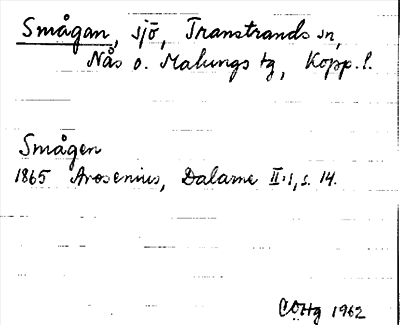 Smågan, sjö, Transtrands sn,
Nås o. Malungs tg, Kopp. l.
Smågen
1865 Arosenius, Dalarne II:1, s. 14.
COHg 1962